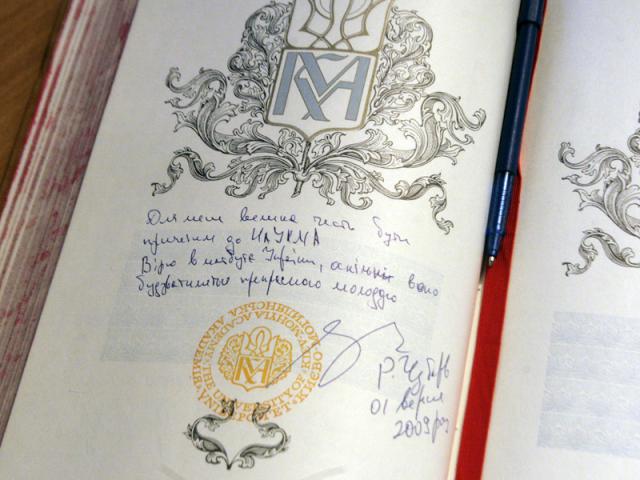 КМА
Для мене велика честь бути
причетним до НАУКМА
Вірю в майбутнє України,
будуватиметься прекрасною молоддю
UNIVERSITY OF KYIV-MOHYLA ACADEMY
УНІВЕРСИТЕТ КИЄВО-МОГИЛЯНСЬКА АКАДЕМІЯ
КМА
Р.
01 вересня
2009 року